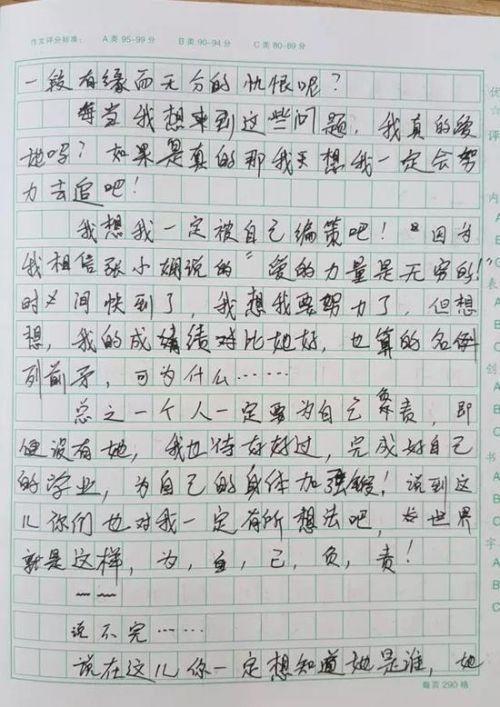 作文评分标准： A类95-99分 B类90-94分 C类80-89分
一段有缘而无分的仇恨呢？
每当我想来到这些问题，我真的爱
她吗？如果是真的那我想我一定会努
力去追吧！
我想我一定被自己编策吧！"因为
我相信张小娴说的"爱的力量是无穷的！
时间快到了，我想我要努力了，但想
想，我的成绩对比她好，也算的名例
列前矛，可为什么……
总之一个人一定要为自己负责，即
便没有她，我也待好好过，完成好自己
的学业，为自己的身体加强锻！说到这
儿你们也对我一定有所想法吧，世界
就是这样，为，自，己，负，责！
——
说不完……
说在这儿你一定想知道她是谁，她
每页290格
优
☆
评
内
A
B
C
表
A
创
A
书
A
B
C
字
A
B
C